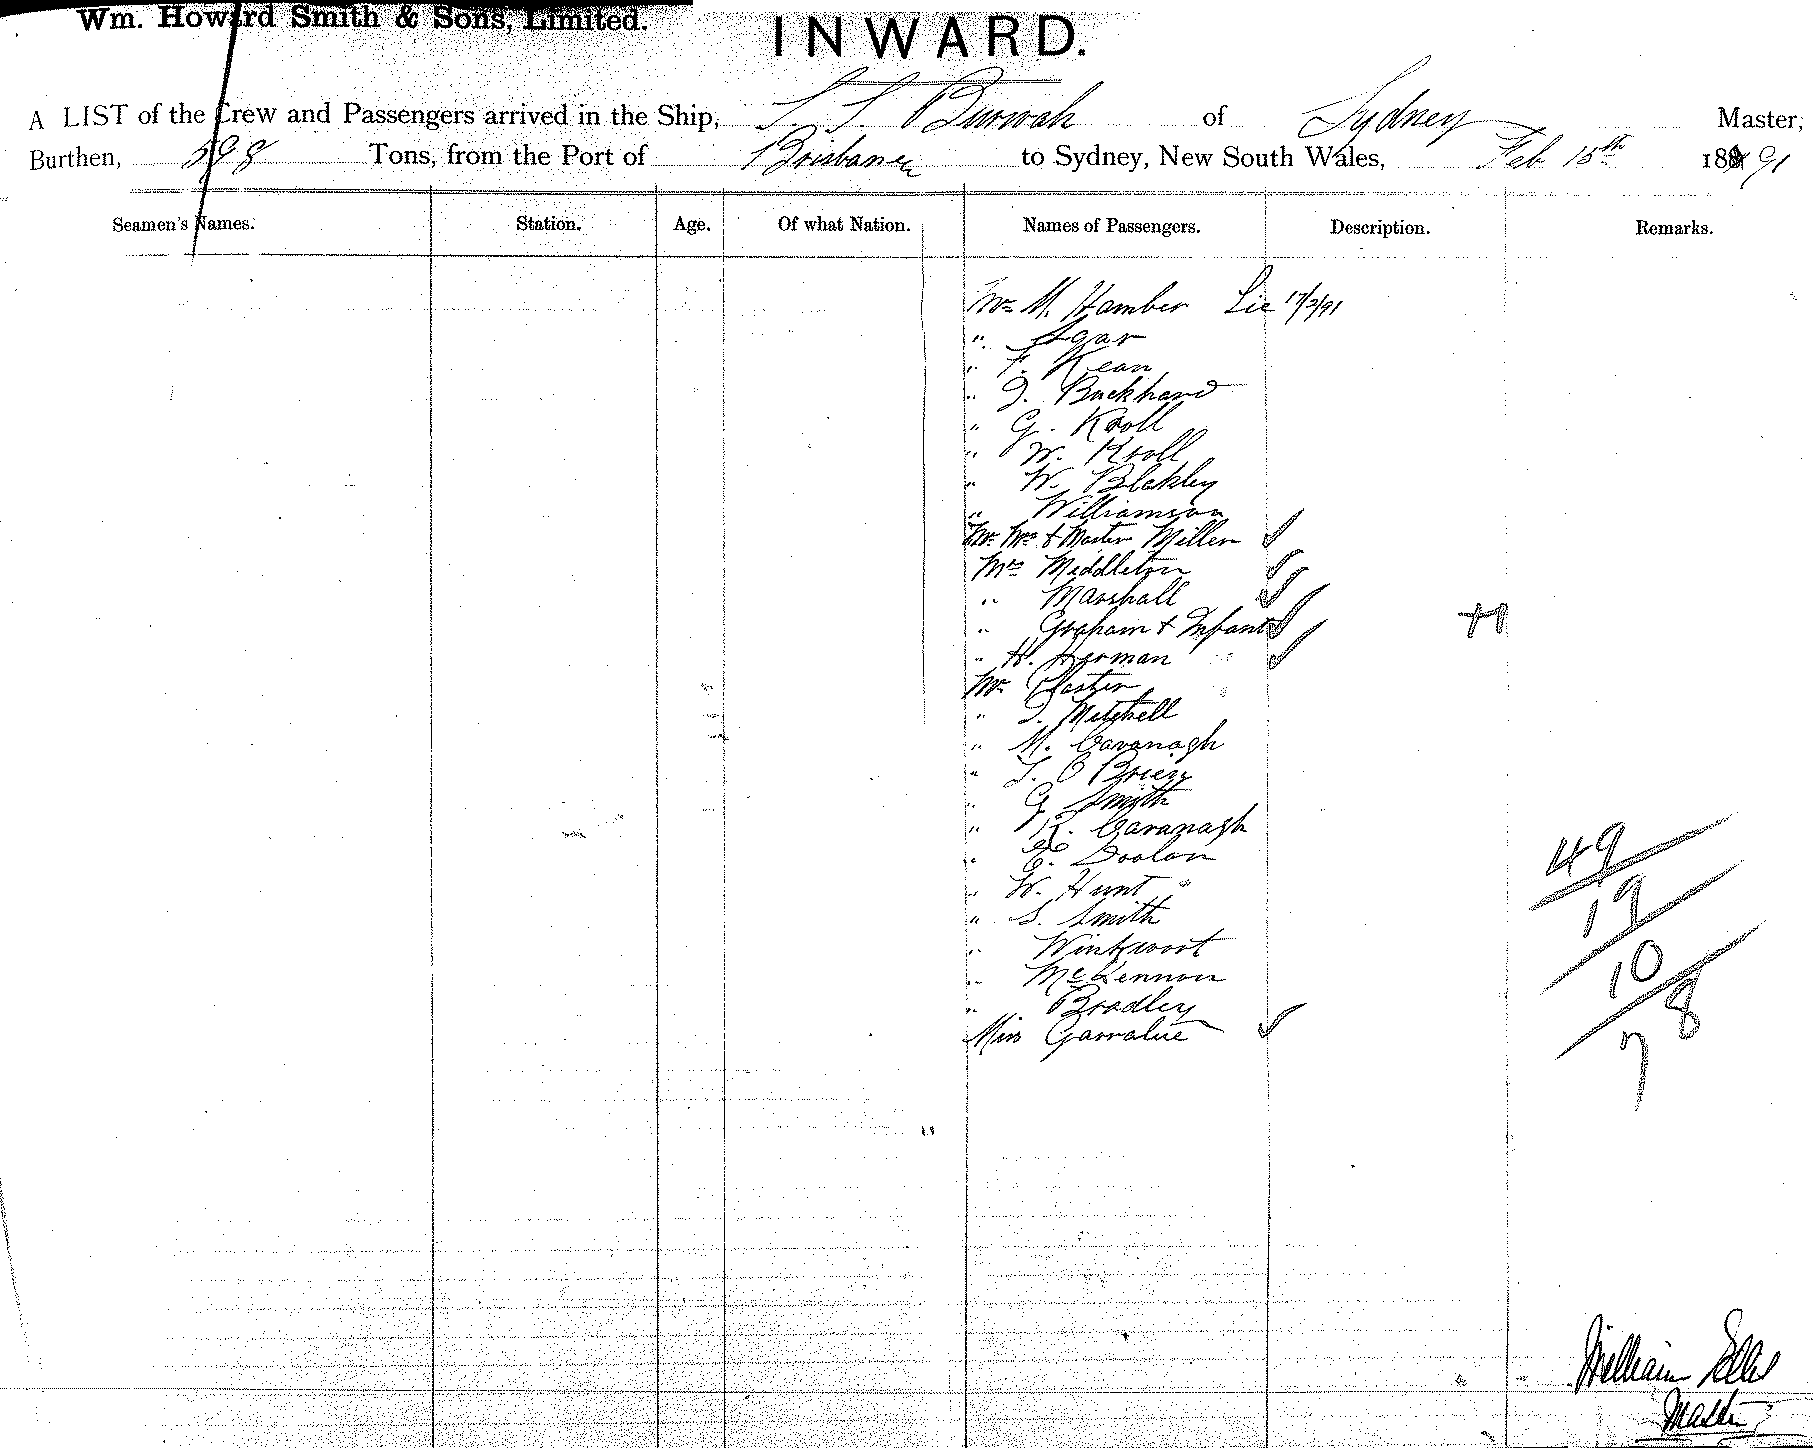 Wm. Howard Smith & Sons, Limited.
INWARD.
A LIST of the Crew and Passengers arrived in the Ship, S. S. Burwah of Sydney Master,
Burthen, 598 Tons, from the Port of Brisbane to Sydney, New South Wales, Feb 15th 1891
Seamen's Names. Station. Age. Of what Nation. Names of Passengers. Description. Remarks.
Mr M. Hamber 17/2/91
" Agar
" F. Kean
" J. Buckhand
" G. Kroll
" W. Kroll
" W. Blakley
" Williamson
Mr Mrs & Master Miller
Mrs Middleton
" Marshall
" Graham & Infant
" H. Herman
Mr
" J. Mitchell
" M. Cavanagh
" T. O Brien
" G Smith
" R. Cavanagh
" E. Doolan
" W. Hunt
" S. Smith
" Winkwort
" McLennon
" Bradley
Miss
49
19
10
78
William Ellis
Master